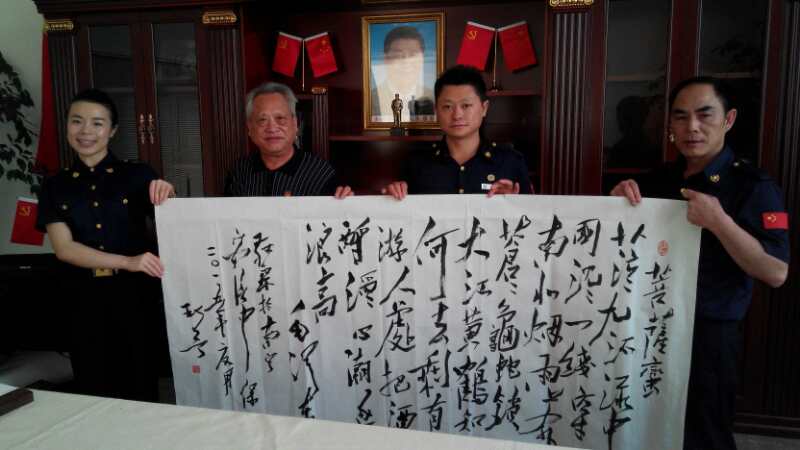 菩薩蛮
茫茫九派流中
國沉沉一线穿
南北烟雨莽
苍苍龜蛇鎖
大江黄鶴知
何去剩有
游人處把酒
酹滔滔心潮逐
浪高
毛泽东
二〇一五年夏月